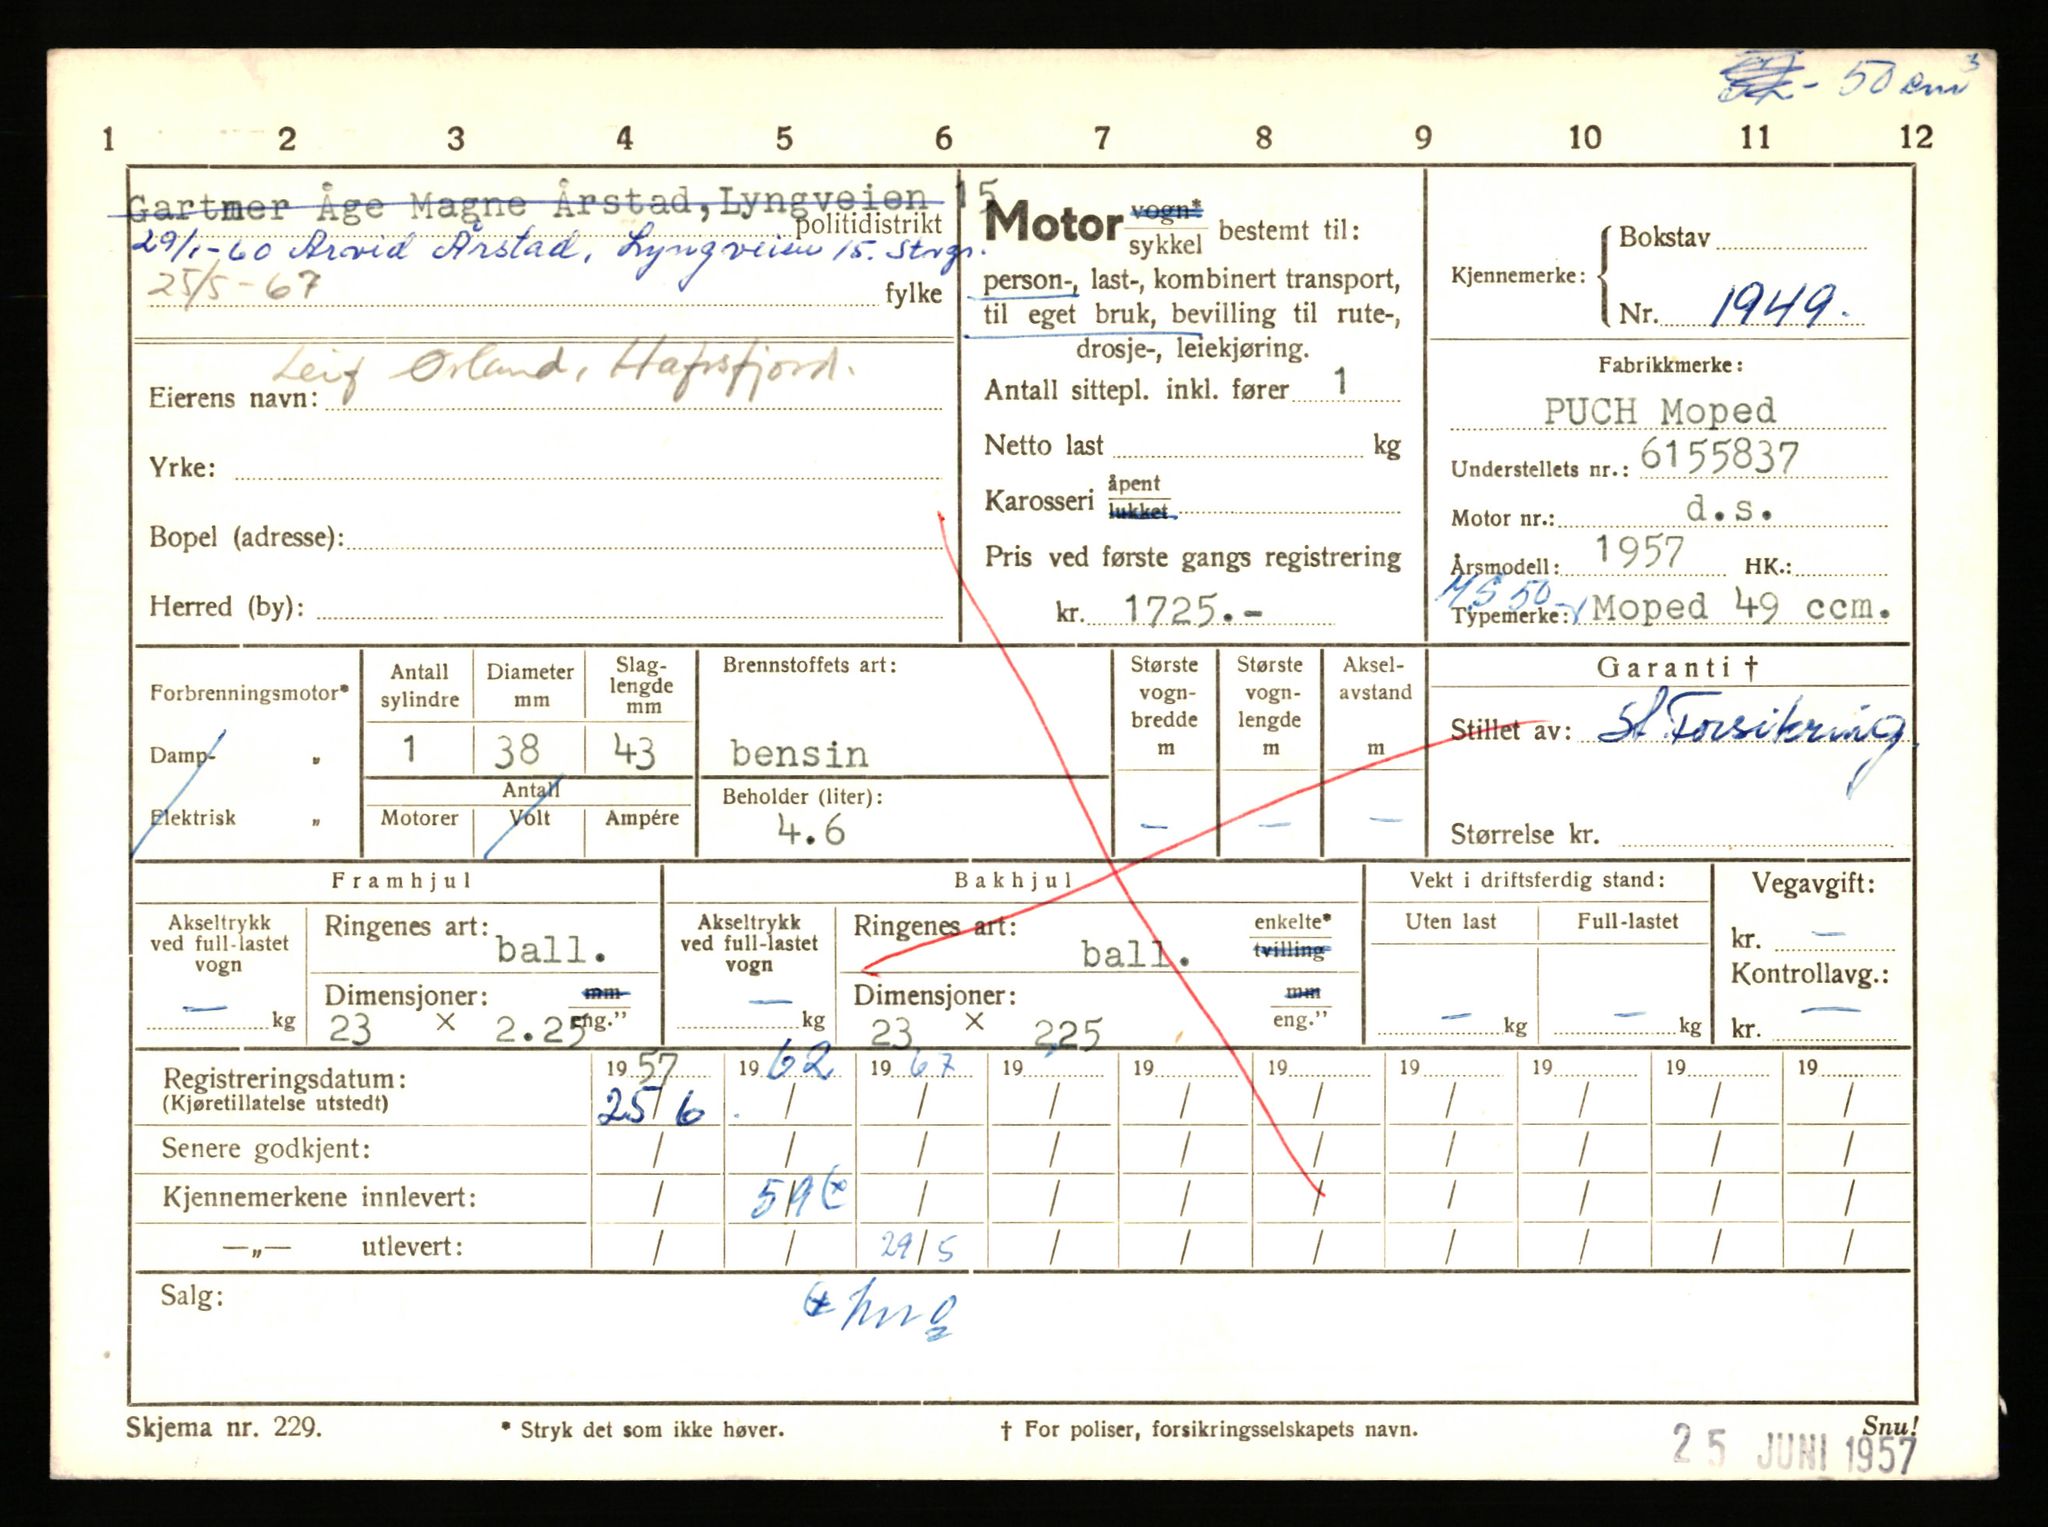 - 50 cm³
1 2 3 4 5 6 7 8 9 10 11 12
Gartner Åge Magne Årstad, Lyngveien 15
politidistrikt
29/1-60 Arvid Årstad, Lyngveien 15. Stvgr.
25/5-67
fylke
Leif Ørland, Hafrsfjord.
Eierens navn:
Yrke:
Bopel (adresse):
Herred (by):
Motor vogn* / sykkel bestemt til:
person-, last-, kombinert transport,
til eget bruk, bevilling til rute-,
drosje-, leiekjøring.
Antall sittepl. inkl. fører 1
Netto last kg
Karosseri åpent / lukket
Pris ved første gangs registrering
kr. 1725.-
Kjennemerke: Bokstav
Nr. 1949.
Fabrikkmerke:
PUCH Moped
Understellets nr.: 6155837
Motor nr.: d.s.
Årsmodell: 1957 HK.:
MS 50
Typemerke: Moped 49 ccm.
Forbrenningsmotor*
Damp- „
Elektrisk „
Antall sylindre
1
Diameter mm
38
Slag-lengde mm
43
Antall
Motorer Volt Ampére
Brennstoffets art:
bensin
Beholder (liter):
4.6
Største vogn-bredde m
-
Største vogn-lengde m
-
Aksel-avstand m
-
Garanti †
Stillet av: St. Forsikring
Størrelse kr.
Framhjul
Akseltrykk ved full-lastet vogn
- kg
Ringenes art: ball.
Dimensjoner: mm / eng."
23 × 2.25
Bakhjul
Akseltrykk ved full-lastet vogn
- kg
Ringenes art: ball. enkelte* / tvilling
Dimensjoner: mm / eng."
23 × 225
Vekt i driftsferdig stand:
Uten last Full-lastet
- kg - kg
Vegavgift:
kr. -
Kontrollavg.:
kr. -
Registreringsdatum: 1957 1962 1967 19 19 19 19 19 19 19
(Kjøretillatelse utstedt) 25/6 / / / / / / / / /
Senere godkjent: / / / / / / / / / /
Kjennemerkene innlevert: / 5/9 (x / / / / / / / /
—„— utlevert: / / 29/5 / / / / / / /
Salg:
Skjema nr. 229.
* Stryk det som ikke høver.
† For poliser, forsikringsselskapets navn.
Snu!
25 JUNI 1957